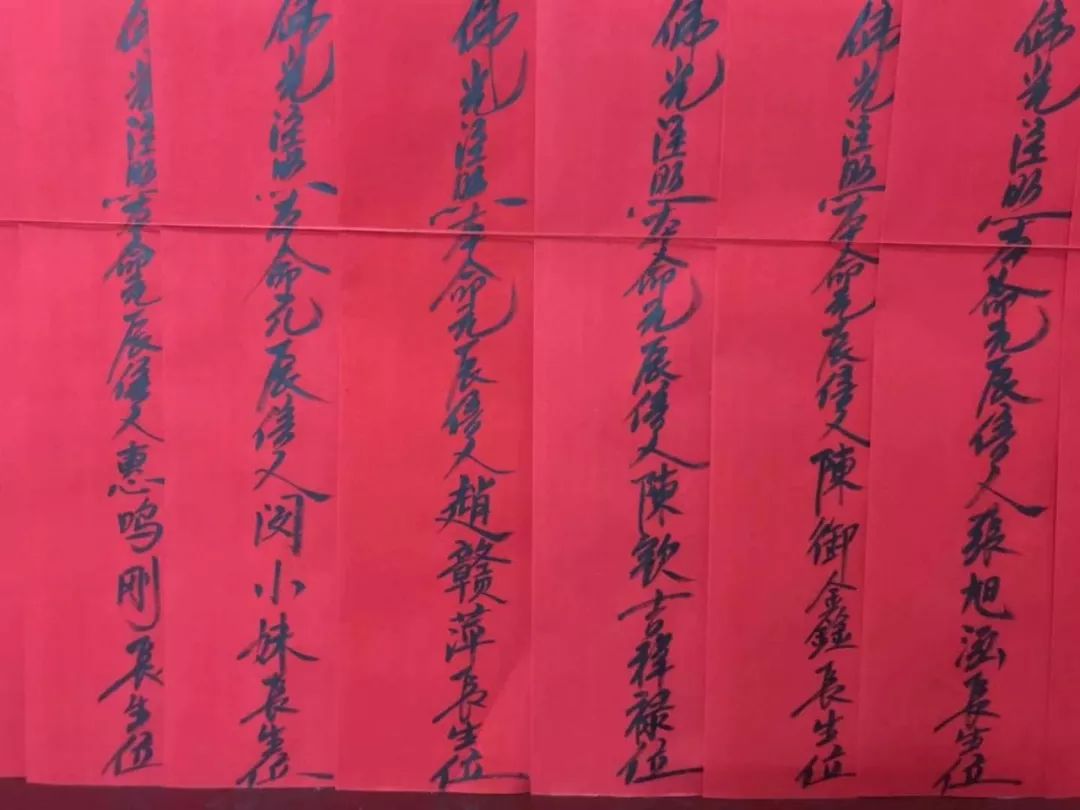 佛光注照本命元辰信人張旭涵長生位
佛光注照本命元辰信人陳御鑫長生位
佛光注照本命元辰信人陳欽吉祥禄位
佛光注照本命元辰信人趙赣萍長生位
佛光注照本命元辰信人闵小妹長生位
佛光注照本命元辰信人惠鸣刚長生位